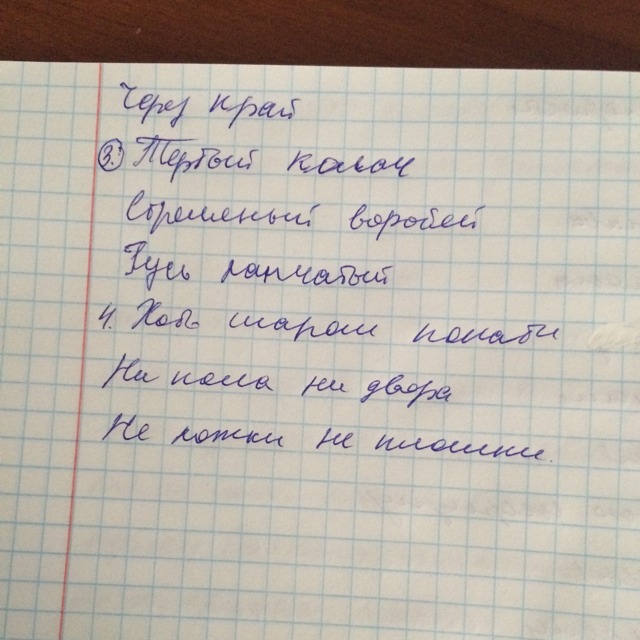 Через край
3. Тертый калач
Стреляный воробей
Гусь лапчатый
4. Хоть шаром покати
Ни кола ни двора
Не ложки не плошки.